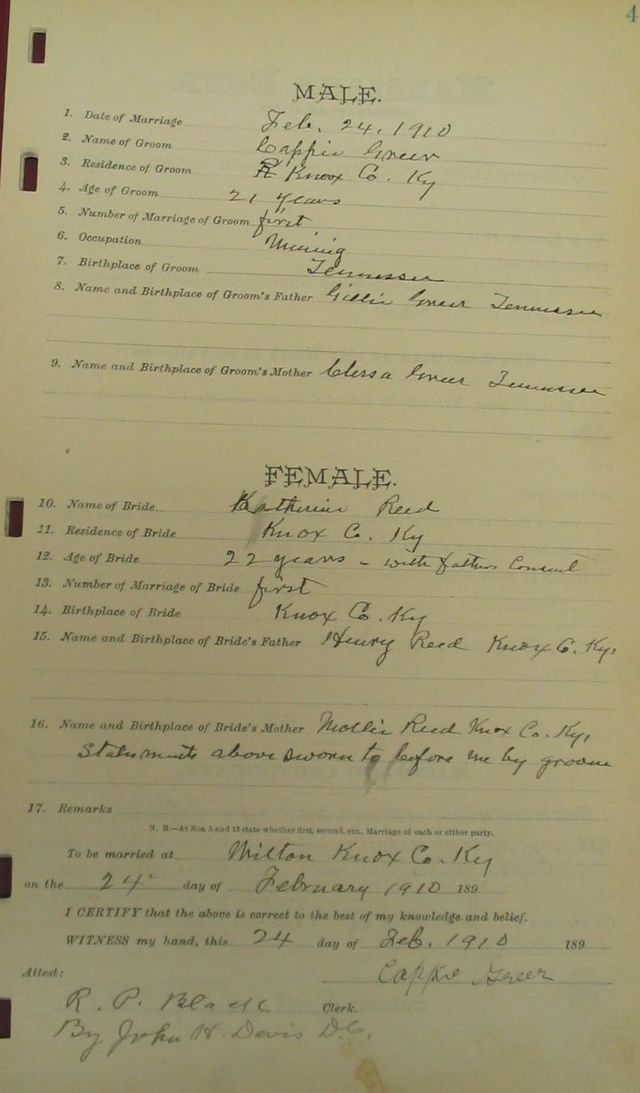 4
MALE.
1. Date of Marriage Feb. 24, 1910
2. Name of Groom Cappie Greer
3. Residence of Groom Knox Co. Ky
4. Age of Groom 21 years
5. Number of Marriage of Groom first
6. Occupation Mining
7. Birthplace of Groom Tennessee
8. Name and Birthplace of Groom's Father Greer Tennessee
9. Name and Birthplace of Groom's Mother Clersa Greer Tennessee
FEMALE.
10. Name of Bride Katherine Reed
11. Residence of Bride Knox Co. Ky
12. Age of Bride 22 years - with fathers Consent
13. Number of Marriage of Bride first
14. Birthplace of Bride Knox Co. Ky
15. Name and Birthplace of Bride's Father Henry Reed Knox C. Ky.
16. Name and Birthplace of Bride's Mother Mollie Reed Knox Co. Ky.
Statements above sworn to before me by groom
17. Remarks
N. B.—At Nos. 5 and 13 state whether first, second, etc., Marriage of each or either party.
To be married at Wilton Knox Co. Ky
on the 24 day of February 1910 189
I CERTIFY that the above is correct to the best of my knowledge and belief.
WITNESS my hand, this 24 day of Feb. 1910 189
Cappie Greer
Attest:
R. P. Black Clerk.
By John H. Davis D.C.